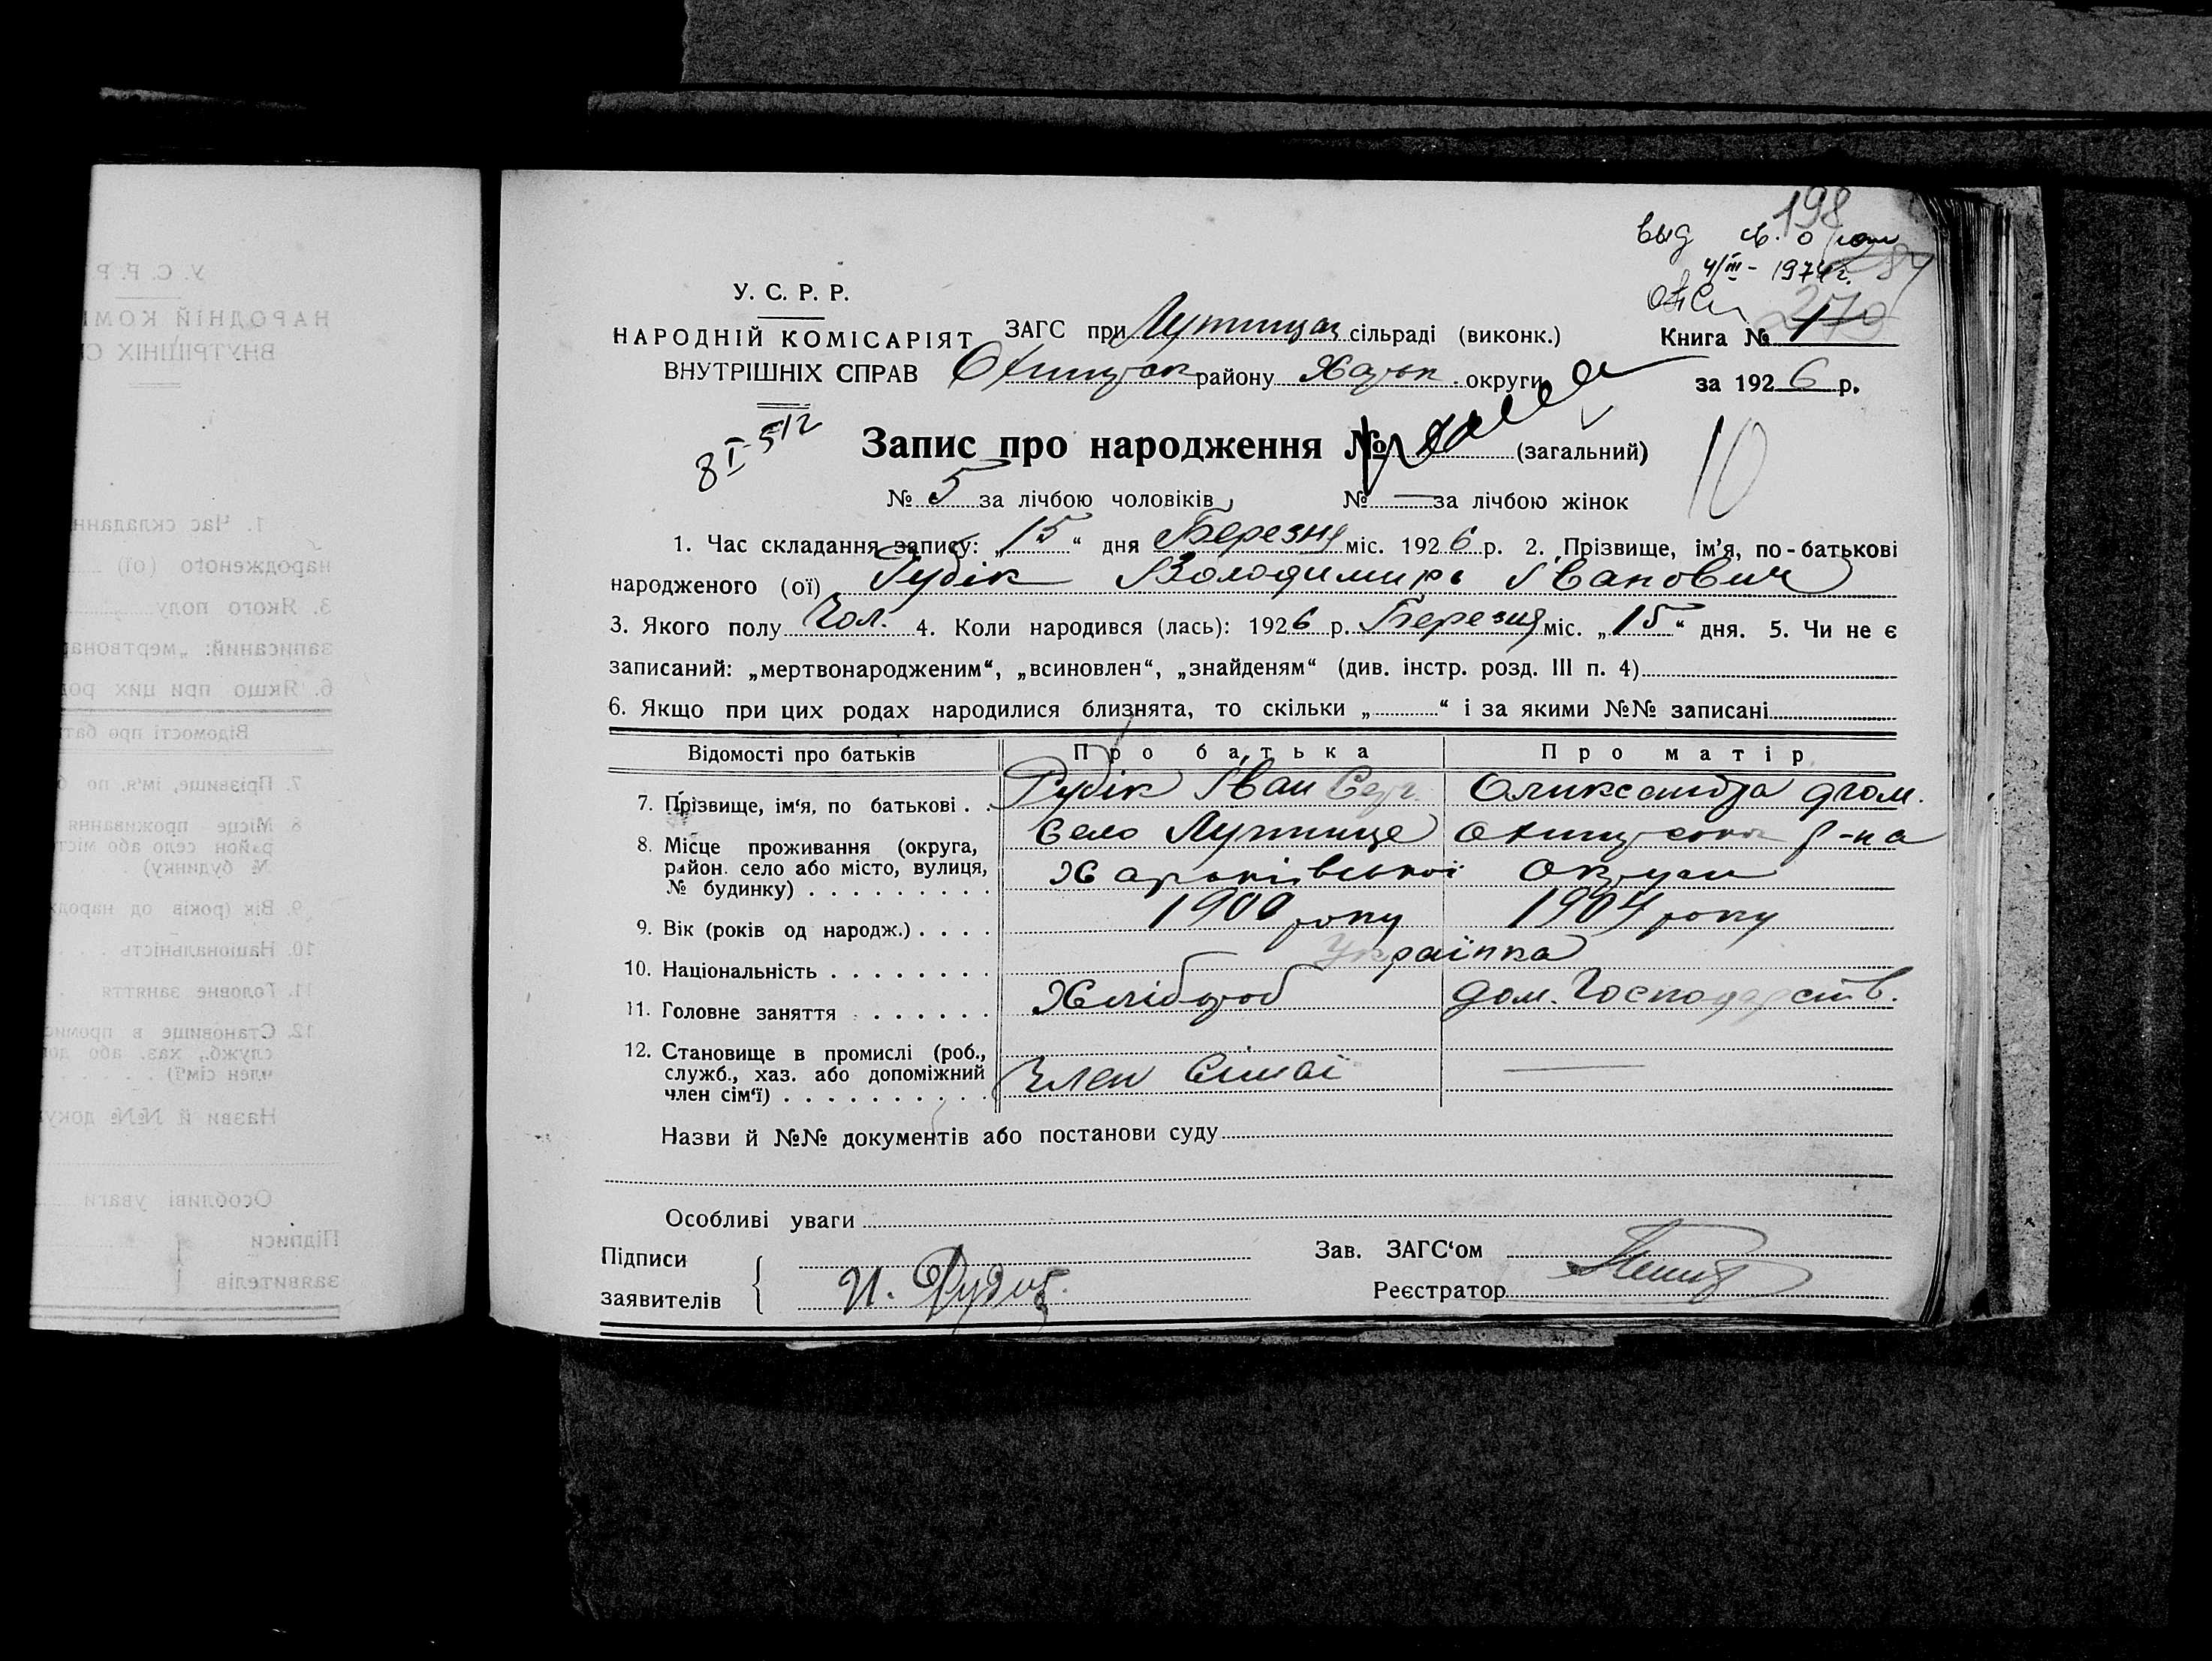 198
выд св. о рож
4/III - 1974 г. 84
У. С. Р. Р.
НАРОДНІЙ КОМІСАРІЯТ ЗАГС при сільраді (виконк.) Книга №
ВНУТРІШНІХ СПРАВ району Харьк. округи за 1926 р.
8 I-512
Запис про народження № (загальний) 10
№ 5 за лічбою чоловіків, № — за лічбою жінок
1. Час складання запису: „15“ дня Березня міс. 1926 р. 2. Прізвище, ім’я, по-батькові
народженого (ої) Рубік Володимирь Іванович
3. Якого полу Чол. 4. Коли народився (лась): 1926 р. Березня міс. „15“ дня. 5. Чи не є
записаний: „мертвонародженим“, „всиновлен“, „знайденям“ (див. інстр. розд. III п. 4)
6. Якщо при цих родах народилися близнята, то скільки „ “ і за якими №№ записані
Відомості про батьків Про батька Про матір
7. Прізвище, ім‘я, по батькові . . Рубік Іван
8. Місце проживання (округа, Село Лутище р-на
район. село або місто, вулиця, Харьківської Округи
№ будинку) . . . . . . . . .
9. Вік (років од народж.) . . . . 1900 року 1904 року
10. Національність . . . . . . . . Українка
11. Головне заняття . . . . . . . Хлібороб дом. Господарств.
12. Становище в промислі (роб.,
служб., хаз. або допоміжний Член Сімьі —
член сім‘ї) . . . . . . . . . .
Назви й №№ документів або постанови суду
Особливі уваги
Підписи Зав. ЗАГС‘ом
заявителів { И. Реєстратор
У. С. Р. Р.
НАРОДНІЙ КОМІ
ВНУТРІШНІХ С
1. Час складанн
народженого (ої)
3. Якого полу
записаний: „мертвона
6. Якщо при цих род
Відомості про бать
7. Прізвище, ім‘я, по б
8. Місце проживання
район село або міст
№ будинку) .
9. Вік (років од народж
10. Національність . . .
11. Головне заняття .
12. Становище в промис
служб., хаз. або доп
член сім‘ї) . . . .
Назви й №№ доку
Особливі уваги
Підписи
заявителів {